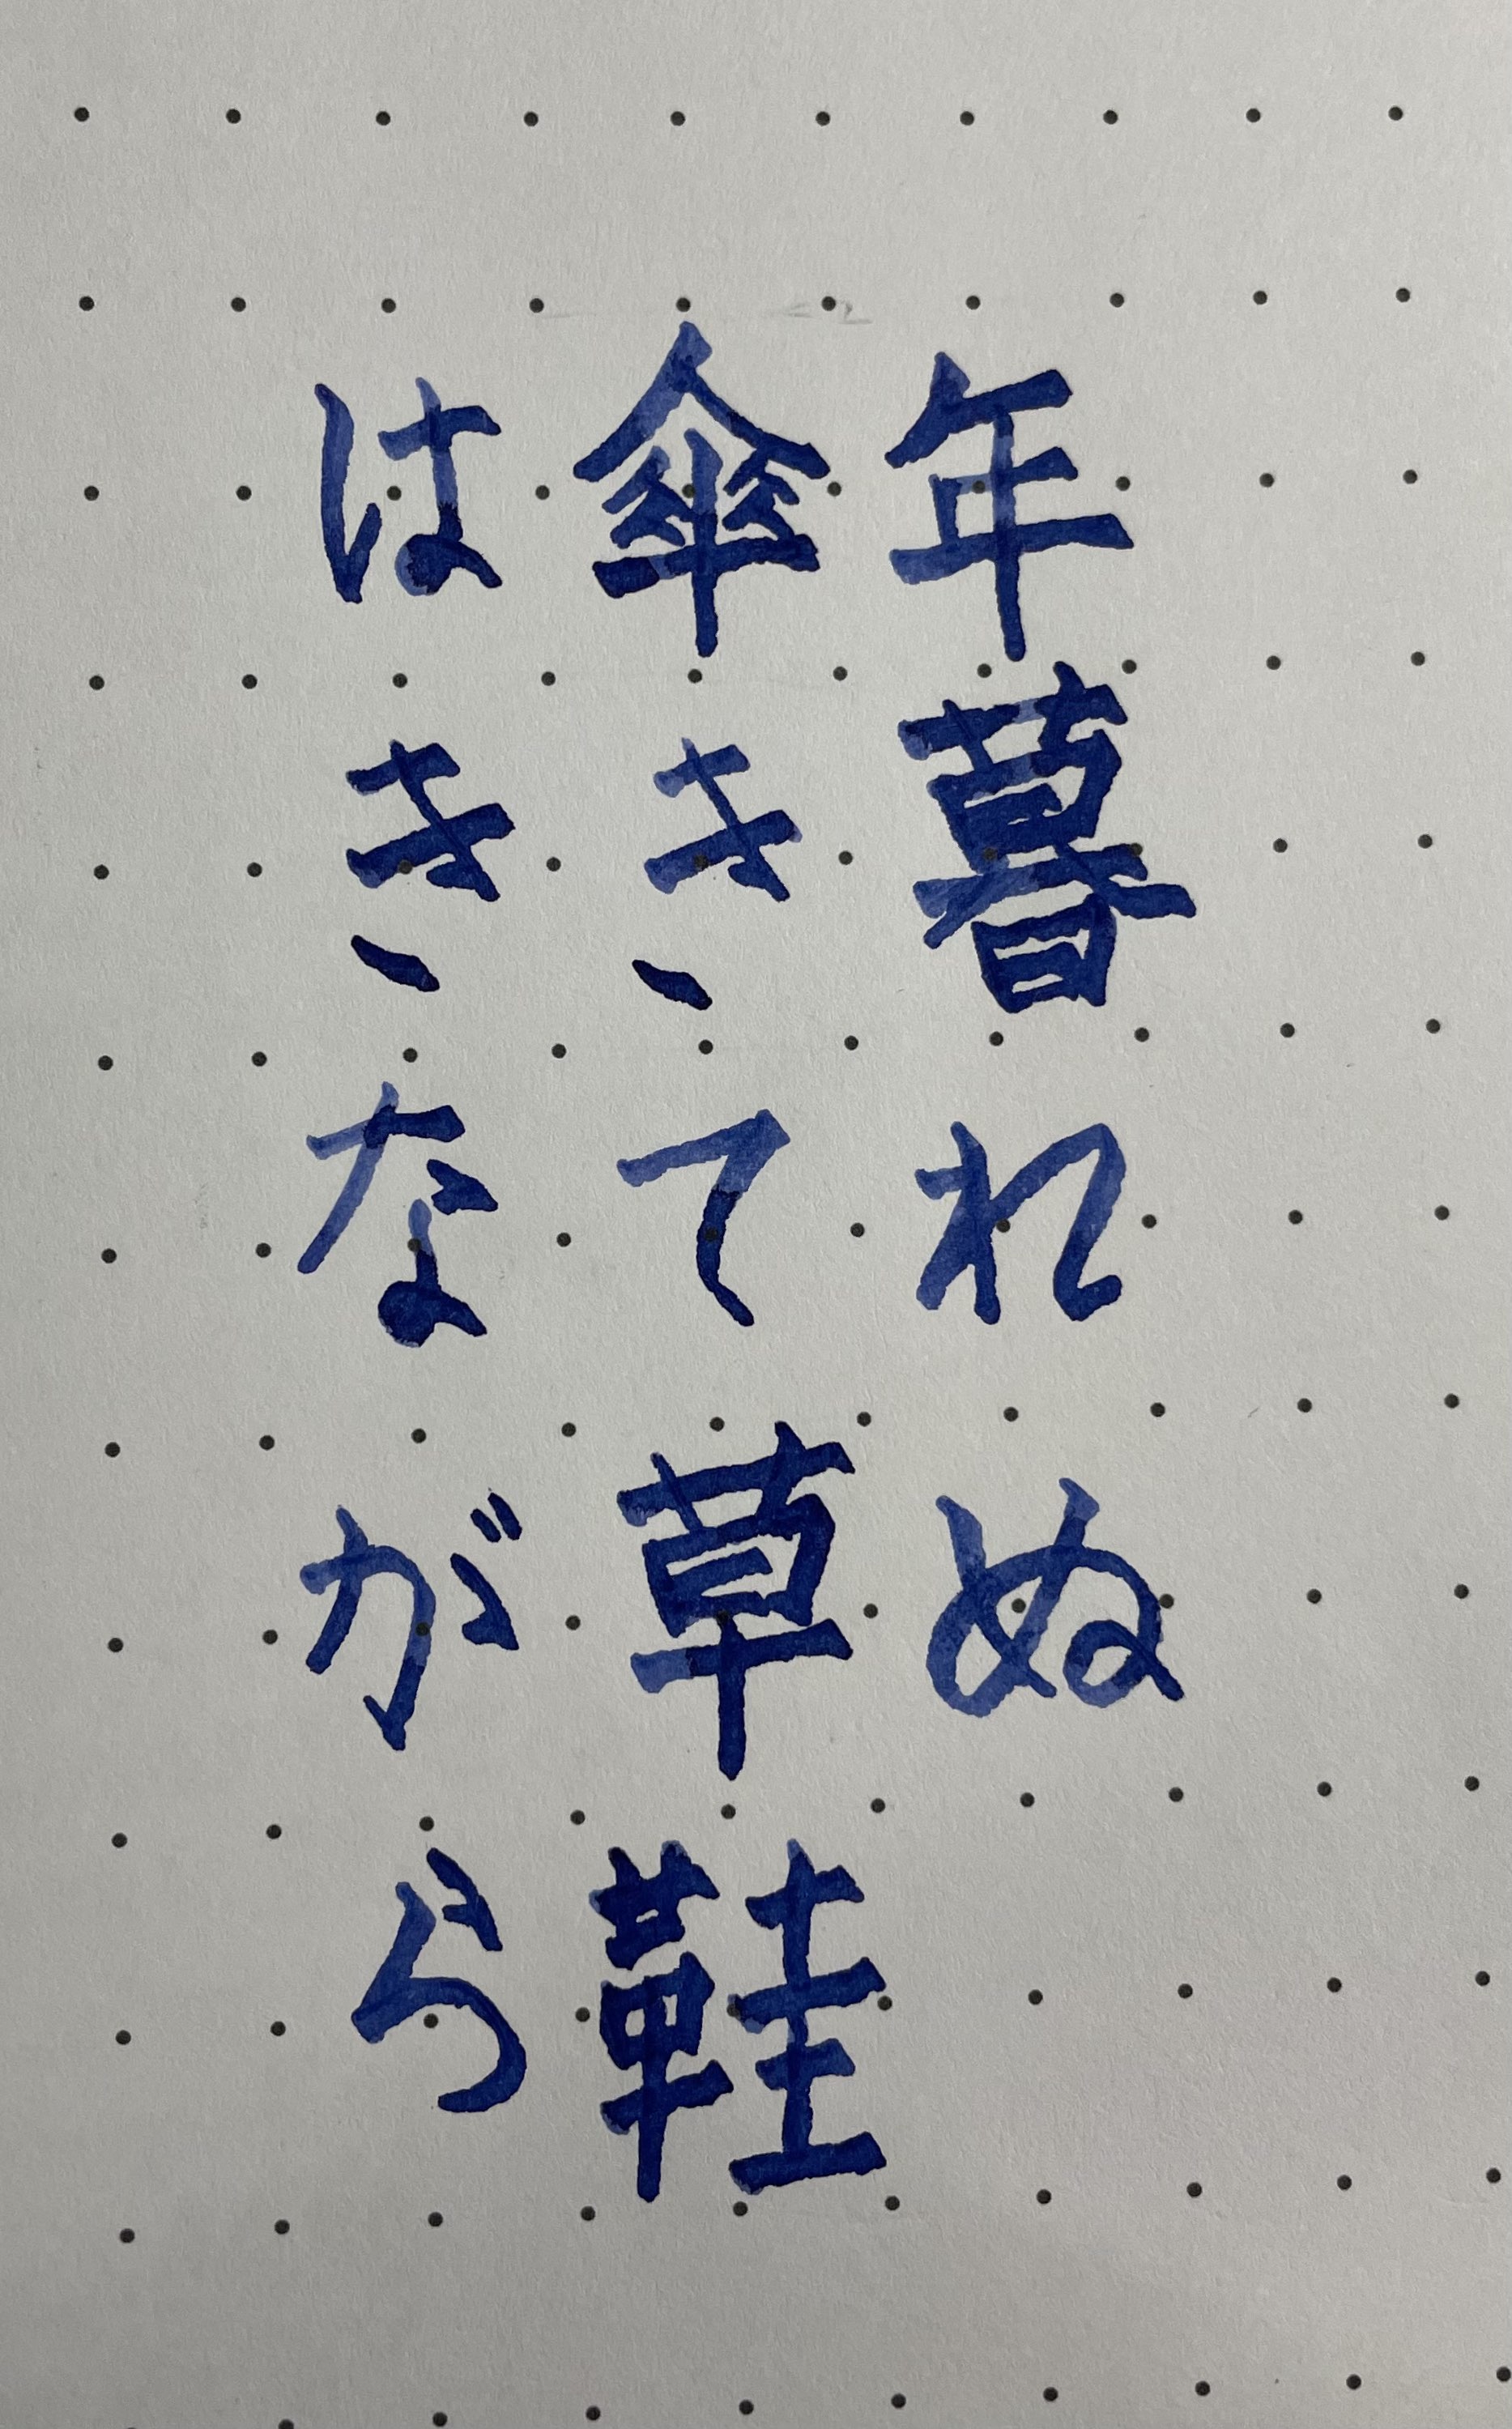 年暮れぬ
傘きヽて草鞋
はきヽながら